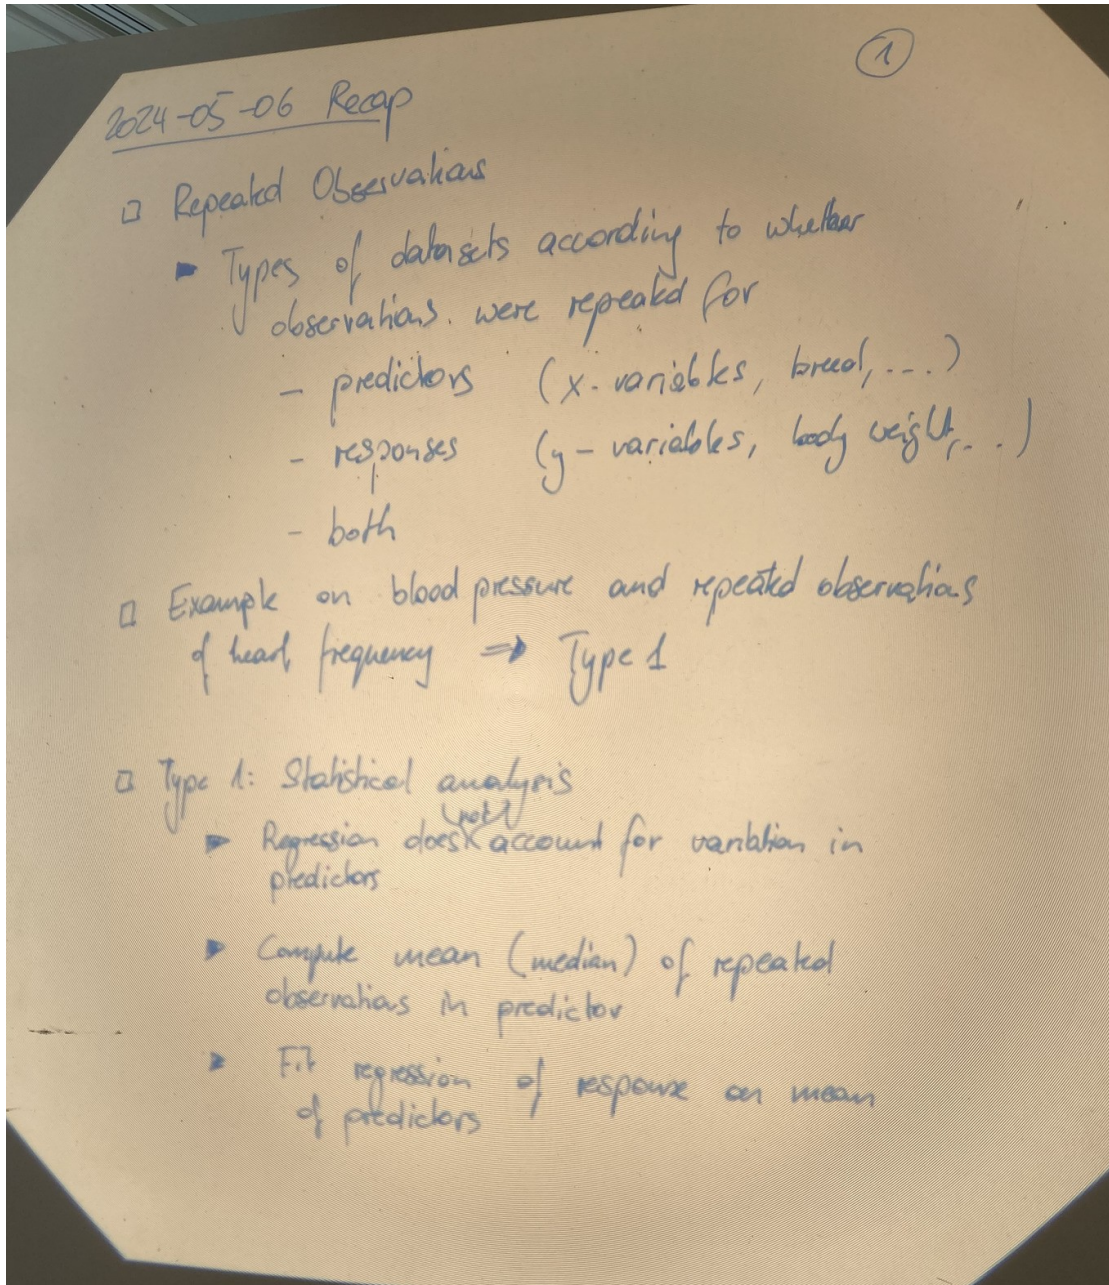 1
2024-05-06 Recap
Repeated Observations
Types of datasets according to whether
observations. were repeated for
- predictors (x-variables, breed, ...)
- responses (y-variables, body weight, ...)
- both
Example on blood pressure and repeated observations
of heart frequency ⇒ Type 1
Type 1: Statistical analysis
(not)
Regression does account for variation in
predictors
Compute mean (median) of repeated
observations in predictor
Fit regression of response on mean
of predictors